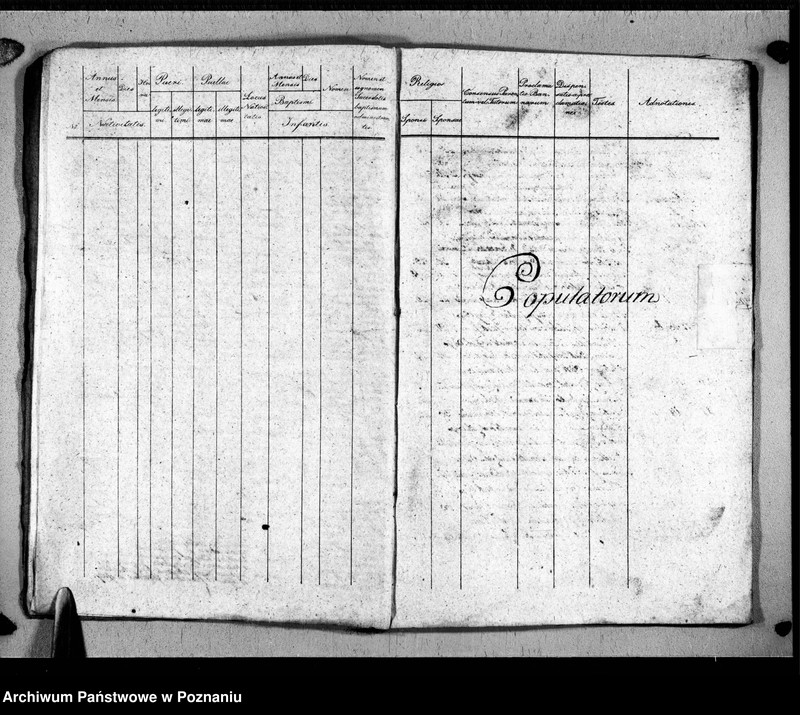 Annus et Mensis
Dies
Ho ra
Pueri
Puellae
Locus Nativi tatis
Annus et Mensis
Dies
Nomen
Nomen et cognomen Sacerdotis baptismum administran tis
legiti mi
illegi timi
legiti mae
illegiti mae
Baptismi
Nr
Nativitatis
Infantis
Religio
Consensus Paren tum vel Tutorum
Proclama tio Ban norum
Testes
Adnotationes
Sponsi
Sponsae
Copulatorum
Archiwum Państwowe w Poznaniu